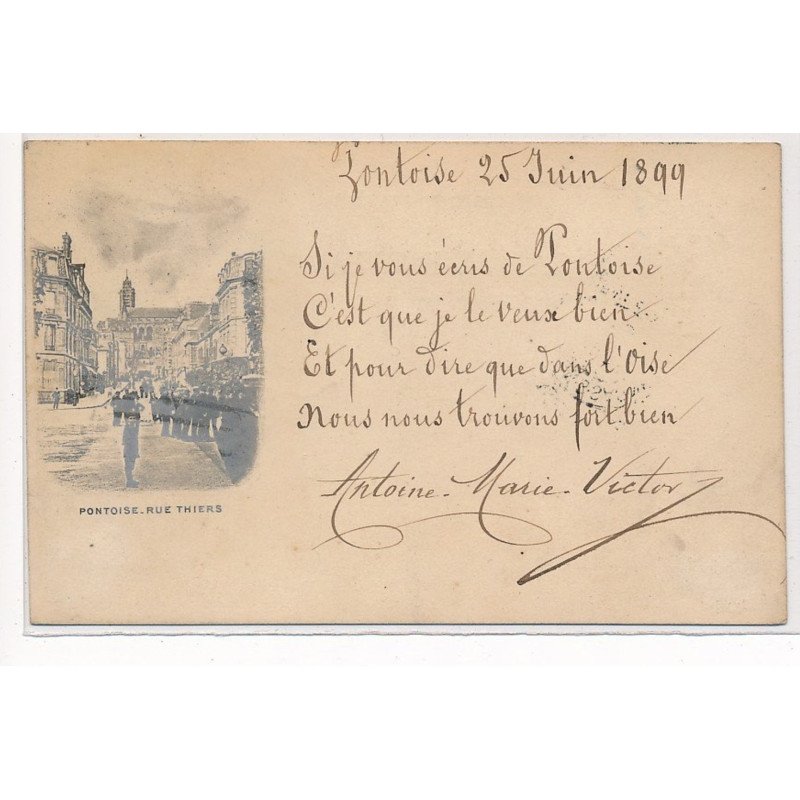 Pontoise 25 Juin 1899
Si je vous écris de Pontoise
C'est que je le veux bien
Et pour dire que dans l'Oise
Nous nous trouvons fort bien
Antoine-Marie-Victor
PONTOISE_RUE THIERS